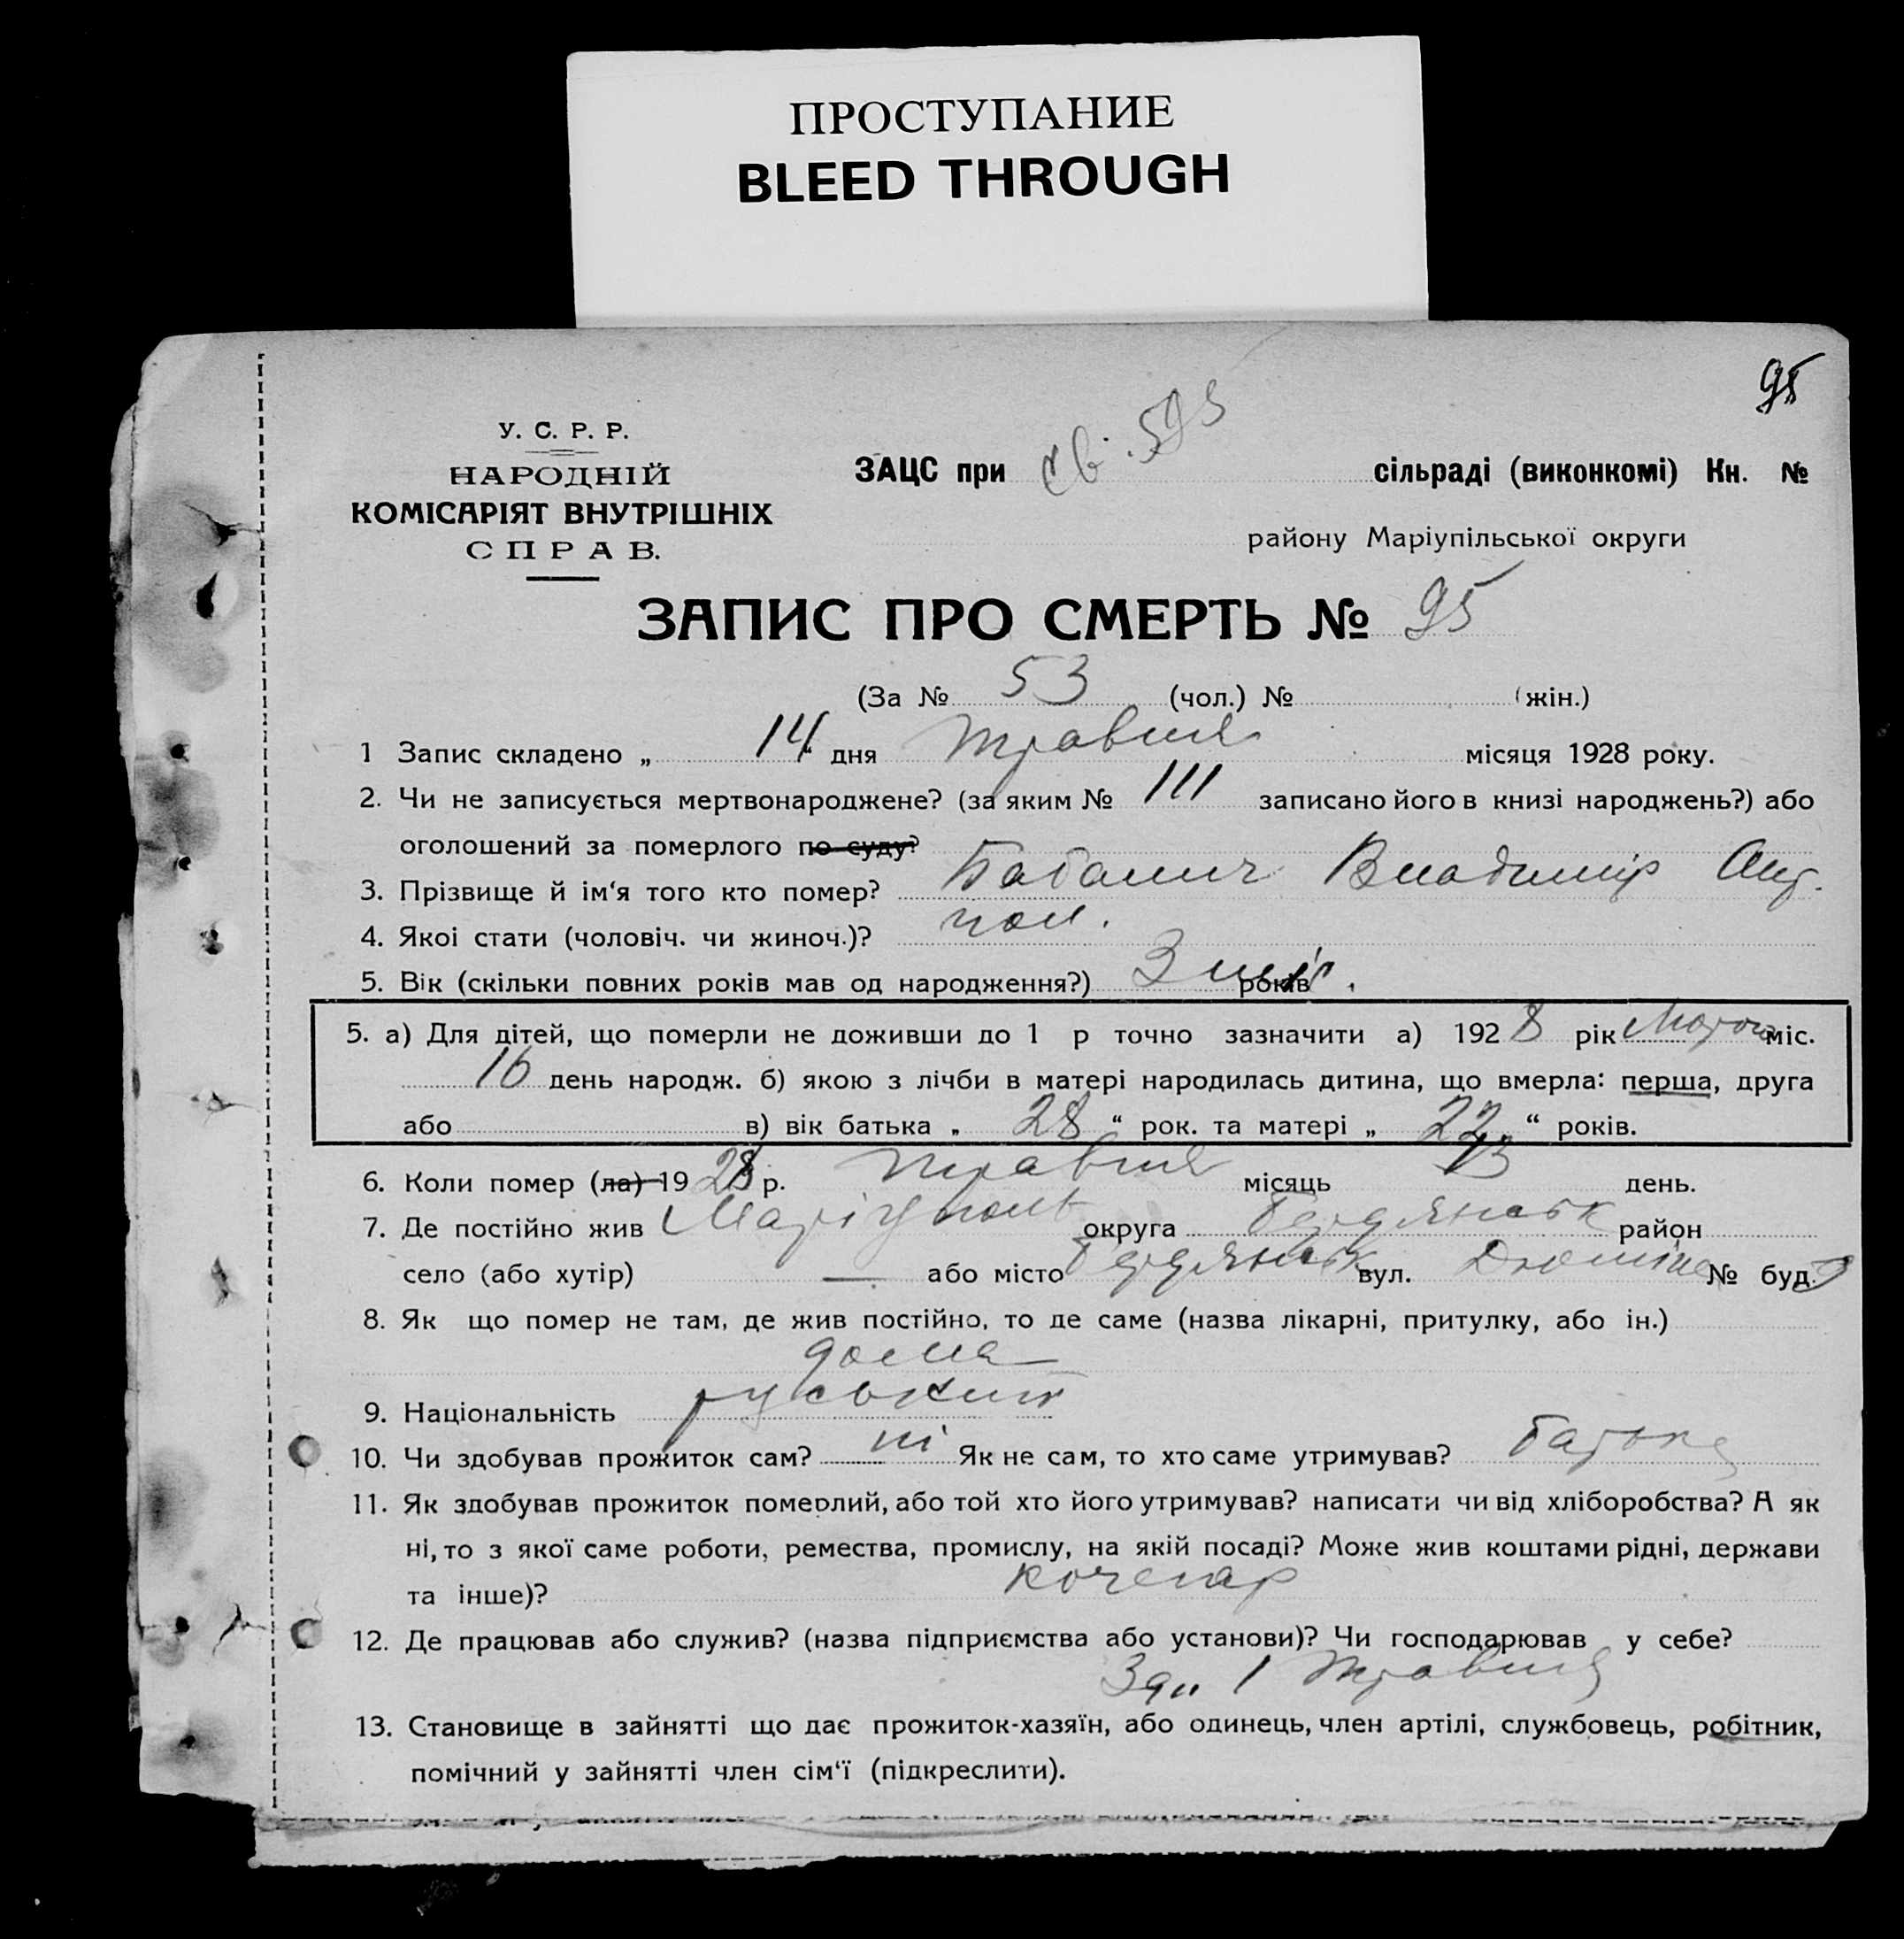 ПРОСТУПАНИЕ
BLEED THROUGH
95
У. С. Р. Р.
НАРОДНІЙ
КОМІСАРІЯТ ВНУТРІШНІХ
СПРАВ.
ЗАЦС при св. 595 сільраді (виконкомі) Кн. №
району Маріупільської округи
ЗАПИС ПРО СМЕРТЬ № 95
(За № 53 (чол.) № (жін.)
1 Запис складено „ 14 “ дня травня місяця 1928 року.
2. Чи не записується мертвонароджене? (за яким № 111 записано його в книзі народжень?) або
оголошений за померлого по суду?
3. Прізвище й ім‘я того кто помер? Бабанич Владимир Анд.
4. Якоі стати (чоловіч. чи жиноч.)? чол.
5. Вік (скільки повних років мав од народження?) років
5. а) Для дітей, що померли не доживши до 1 р точно зазначити а) 1928 рік Марта міс.
16 день народж. б) якою з лічби в матері народилась дитина, що вмерла: перша, друга
або в) вік батька „ 28 “ рок. та матері „ 22 “ років.
6. Коли помер (ла) 1928 р. травня місяць 13 день.
7. Де постійно жив Маріуполь округа Бердянськ район
село (або хутір) — або місто Бердянськ вул. Дюміна № буд.
8. Як що помер не там, де жив постійно, то де саме (назва лікарні, притулку, або ін.)
дома
9. Національність руський
10. Чи здобував прожиток сам? ні Як не сам, то хто саме утримував? батько
11. Як здобував прожиток померлий, або той хто його утримував? написати чи від хліборобства? А як
ні, то з якої саме роботи, ремества, промислу, на якій посаді? Може жив коштами рідні, держави
та інше)? кочегар
12. Де працював або служив? (назва підприємства або установи)? Чи господарював у себе?
Зал. 1 травня
13. Становище в зайнятті що дає прожиток-хазяїн, або одинець, член артілі, службовець, робітник,
помічний у зайнятті член сім‘ї (підкреслити).